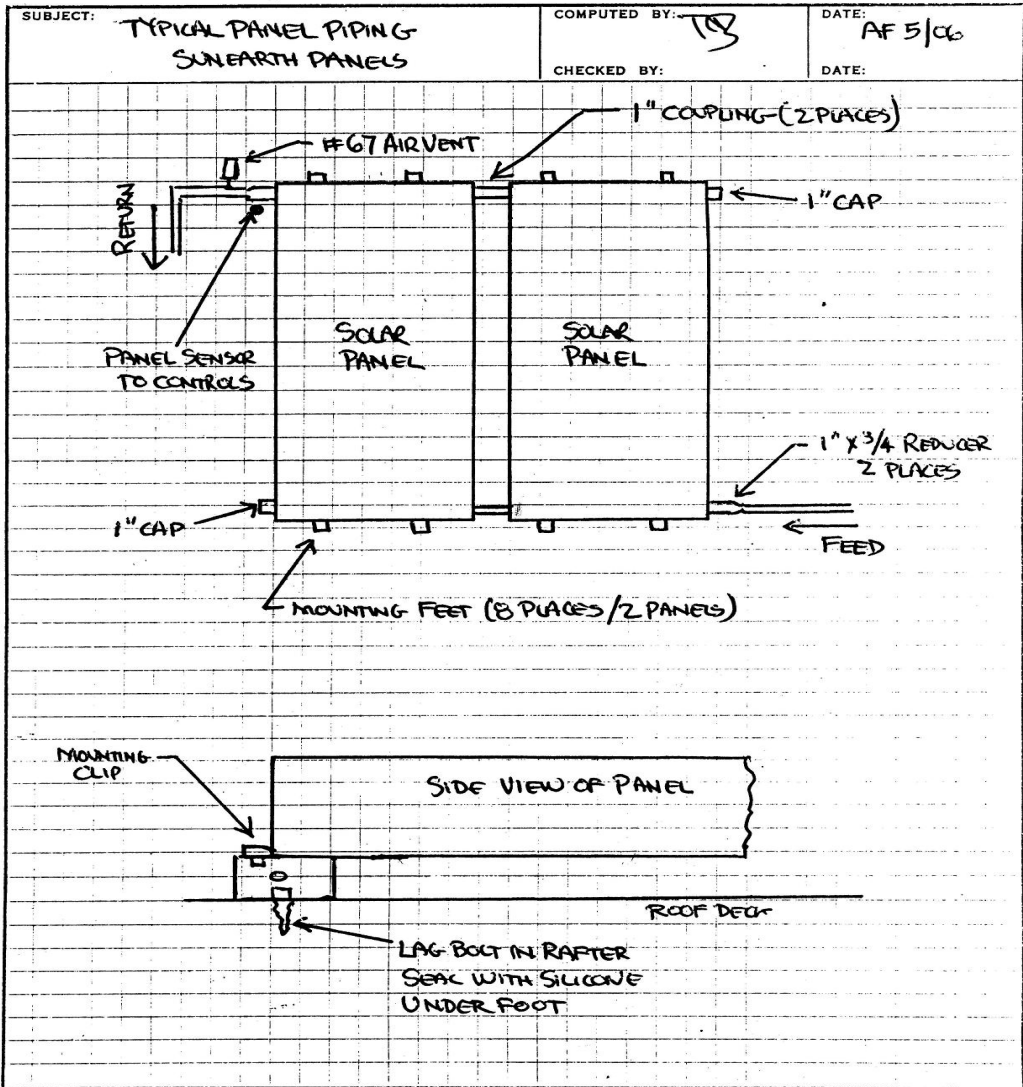 SUBJECT: TYPICAL PANEL PIPING
SUNEARTH PANELS
COMPUTED BY:
DATE: AF 5/06
CHECKED BY:
DATE:
1" COUPLING (2 PLACES)
#67 AIR VENT
RETURN
1" CAP
SOLAR
PANEL
SOLAR
PANEL
PANEL SENSOR
TO CONTROLS
1" X 3/4 REDUCER
2 PLACES
1" CAP
FEED
MOUNTING FEET (8 PLACES/2 PANELS)
MOUNTING
CLIP
SIDE VIEW OF PANEL
ROOF DECK
LAG BOLT IN RAFTER
SEAL WITH SILICONE
UNDER FOOT